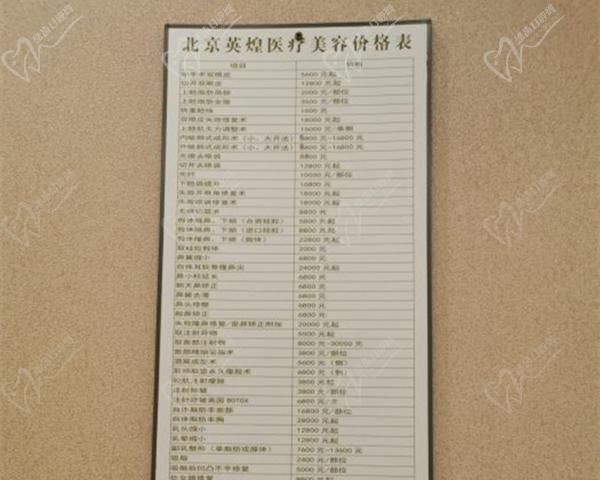 北京英煌医疗美容价格表
项目 价格
5600 元起
切开双眼皮 12800 元起
上睑脂肪填充 2000 元/部位
上睑脂肪去除 3500 元/部位
1500 元
双眼皮失败修复术 18000 元起
上睑肌无力调整术 15000 元/单侧
内眦韧式成形术（小、大开法） 6800 元-16800 元
外眦韧式成形术（小、大开法） 6800 元-16800 元
无痕去眼袋 8800 元
切开去眼袋 12800 元起
10000 元/部位
下睑袋提升 16800 元
失败开眼角修复术 18000 元起
失败眼袋修复术 18000 元起
8800 元
假体隆鼻、下颌（台湾硅胶） 5800 元起
假体隆鼻、下颌（进口硅胶） 8800 元起
假体隆鼻、下颌（膨体） 22800 元起
取硅胶假体 2000 元
鼻翼缩小 6800 元
自体耳软骨隆鼻尖 24000 元起
鼻小柱延长 6800 元
朝天鼻矫正 6800 元
鼻翼去薄 6800 元
鼻头修整 6800 元
驼鼻矫正 6800 元
失败隆鼻修复/歪鼻矫正附加 20000 元起
取注射异物 5000 元起
取面部注射物 8000 元-30000 元
面部精细吸脂术 3800 元/部位
酒窝成形术 5600 元（侧）
6800 元（侧）
咬肌注射瘦脸 3800 元起
注射除皱 3800 元/部位
注射除皱美国BOTOX 6800 元/支
自体脂肪丰面部 16800 元/部位
自体脂肪丰胸 28000 元起
乳头缩小 12800 元起
乳晕缩小 12800 元起
副乳整形（单脂肪或腺体） 7600 元-13600 元
吸脂 2400 元/部位
吸脂后凹凸不平修复 5000 元/部位
9800 元起